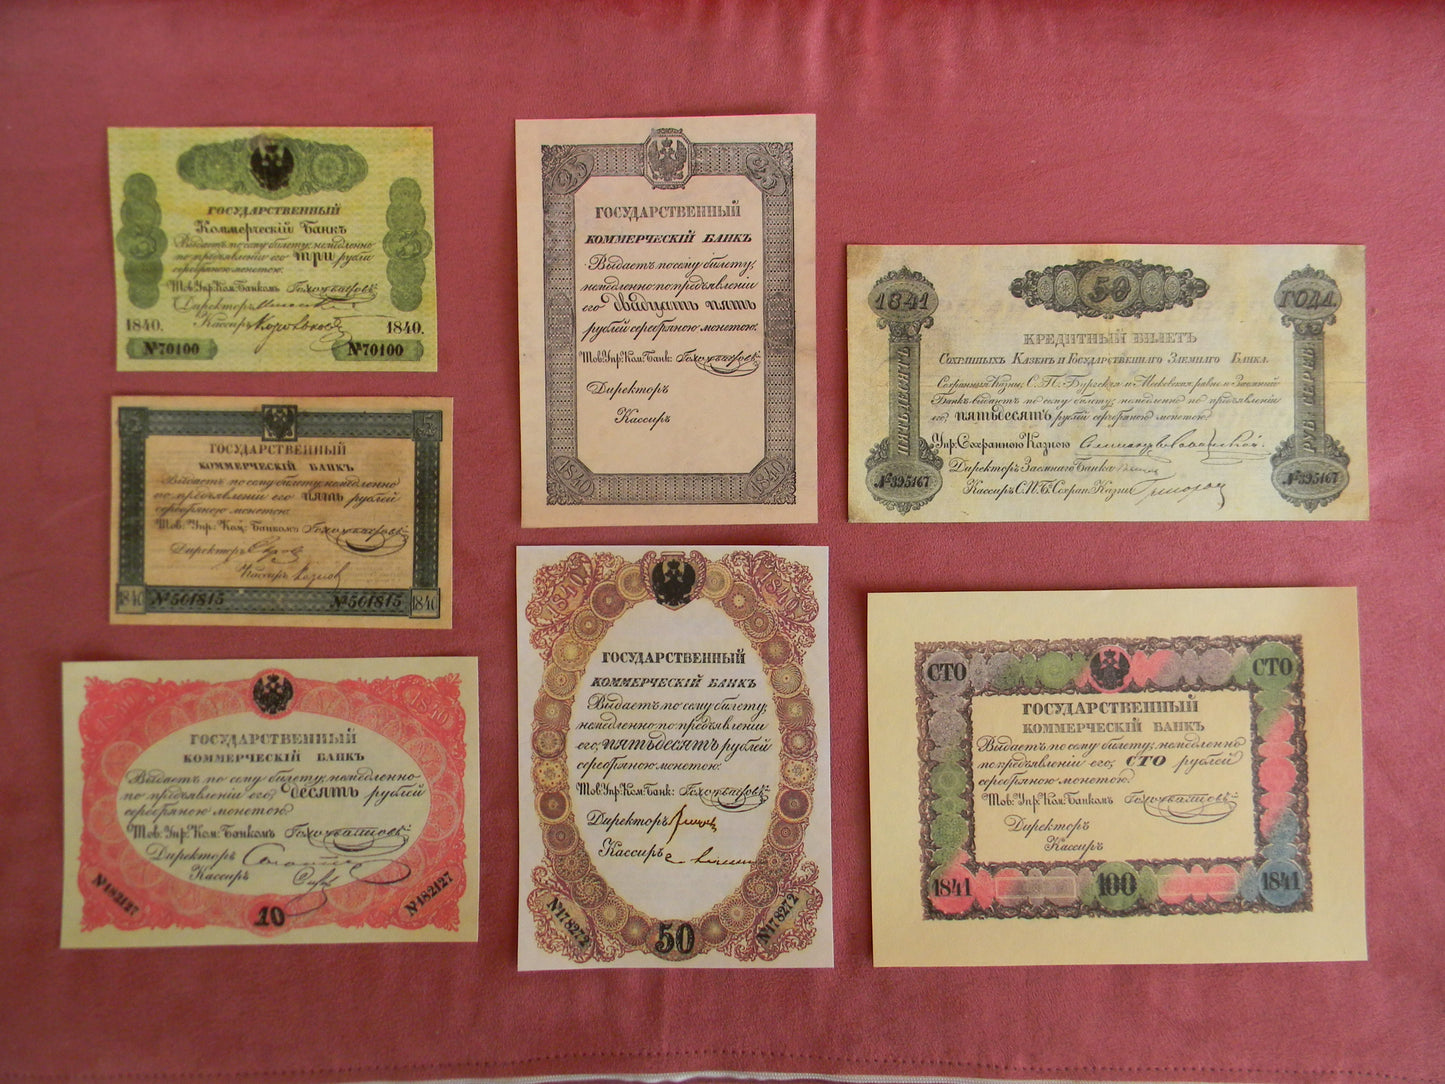 ГОСУДАРСТВЕННЫЙ
Коммерческій Банкъ
Выдаетъ по сему билету, немедленно
по предъявленіи его три рубли
серебряною монетою.
Тов. Упр. Ком. Банкомъ
Директоръ
1840. Кассиръ 1840.
№70100 №70100
5 5
ГОСУДАРСТВЕННЫЙ
КОММЕРЧЕСКІЙ БАНКЪ
Выдаетъ по сему билету, немедленно
по предъявленіи его пять рублей
серебряною монетою.
Тов: Упр: Ком: Банкомъ
Директоръ
Кассиръ
1840 №561815 №561815 1840
1840 1840
ГОСУДАРСТВЕННЫЙ
КОММЕРЧЕСКІЙ БАНКЪ
Выдаетъ по сему билету, немедленно
по предъявленіи его, десять рублей
серебряною монетою.
Тов. Упр. Ком. Банкомъ
Директоръ
Кассиръ
№182127 10 №182127
25 25
ГОСУДАРСТВЕННЫЙ
КОММЕРЧЕСКІЙ БАНКЪ
Выдаетъ по сему билету,
немедленно по предъявленіи
его двадцать пять
рублей серебряною монетою.
Тов. Упр. Ком. Банк:
Директоръ
Кассиръ
1840 1840
1840 1840
ГОСУДАРСТВЕННЫЙ
КОММЕРЧЕСКІЙ БАНКЪ
Выдаетъ по сему билету,
немедленно по предъявленіи
его, пятьдесятъ рублей
серебряною монетою.
Тов. Упр. Ком. Банк:
Директоръ
Кассиръ
№178272 50 №178272
1841 50 ГОДА
КРЕДИТНЫЙ БИЛЕТЪ
Сохранныхъ Казенъ и Государственнаго Заемнаго Банка.
Сохранныя Казны, С. П. Бургская и Московская равно и Заемный
Банкъ выдаютъ по сему билету, немедленно по предъявленіи
его, пятьдесятъ рублей серебряною монетою.
Упр. Сохранною Казною
Директоръ Заемнаго Банка
Кассиръ С. П. Б. Сохран. Казны
ПЯТЬДЕСЯТЪ РУБ: СЕРЕБ:
№395167 №395167
СТО СТО
ГОСУДАРСТВЕННЫЙ
КОММЕРЧЕСКІЙ БАНКЪ
Выдаетъ по сему билету, немедленно
по предъявленіи его, СТО рублей
серебряною монетою.
Тов. Упр. Ком. Банкомъ
Директоръ
Кассиръ
1841 100 1841